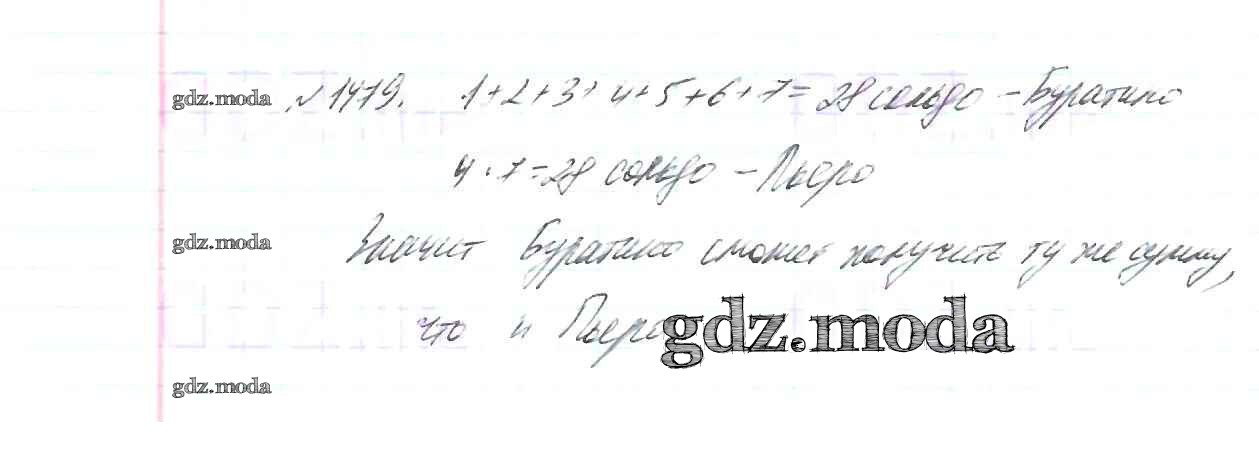 gdz.moda №1479. 1+2+3+4+5+6+7=28 сольдо – Буратино
4·7=28 сольдо – Пьеро
gdz.moda Значит Буратино сможет получить ту же сумму,
что и Пьеро gdz.moda
gdz.moda